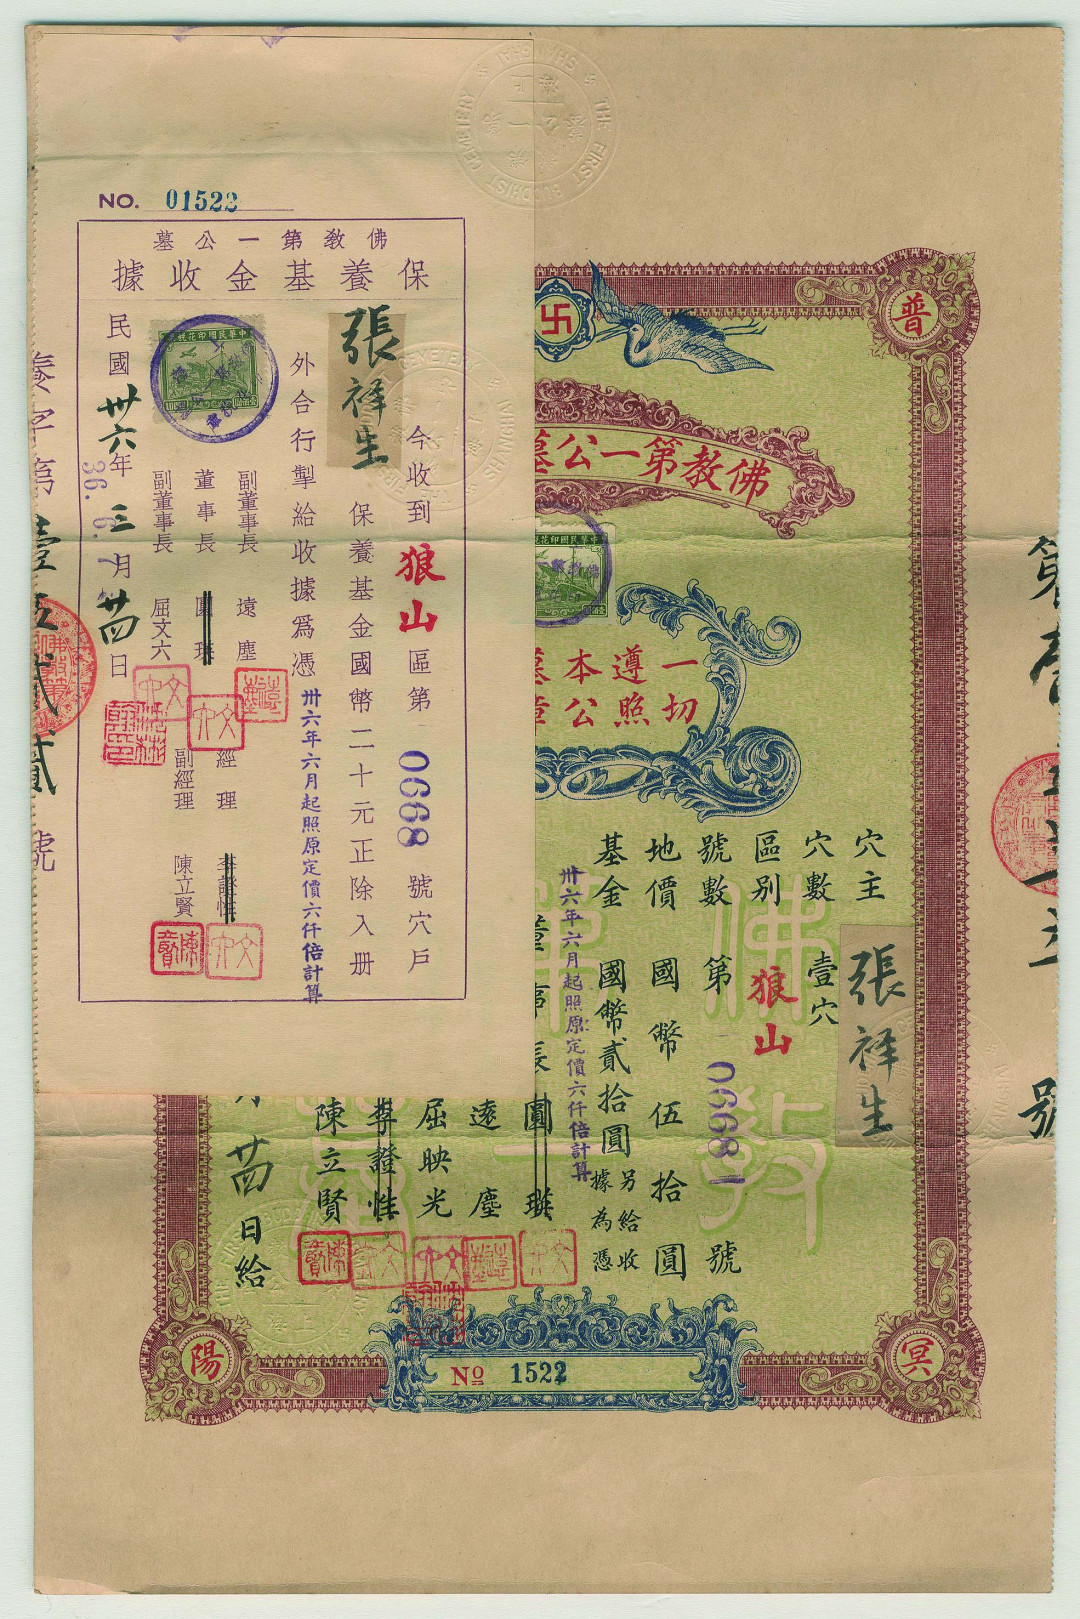 NO. 01522
佛教第一公墓
保養基金收據
今收到狼山區第0668號穴戶
張祥生 保養基金國幣二十元正除入册
外合行掣給收據爲憑
卅六年六月起照原定價六仟倍計算
副董事長 遠塵
董事長 圓瑛
副董事長 屈文六
經理 李證性
副經理 陳立賢
民國卅六年三月廿四日
36.6.
中華民國印花稅票
壹伍貳貳號
THE FIRST BUDDHIST CEMETERY
SHANGHAI
普
卍
佛教第一公墓
中華民國印花
一切
遵照
本公
穴主 張祥生
穴數 壹穴
區別 狼山
號數 第 0668 號
地價 國幣伍拾圓
基金 國幣貳拾圓 另給收據為憑
卅六年六月起照原定價六仟倍計算
董事長 圓瑛
遠塵
屈映光
李證性
陳立賢
廿四日給
佛教第一
陽
冥
No 1522
號